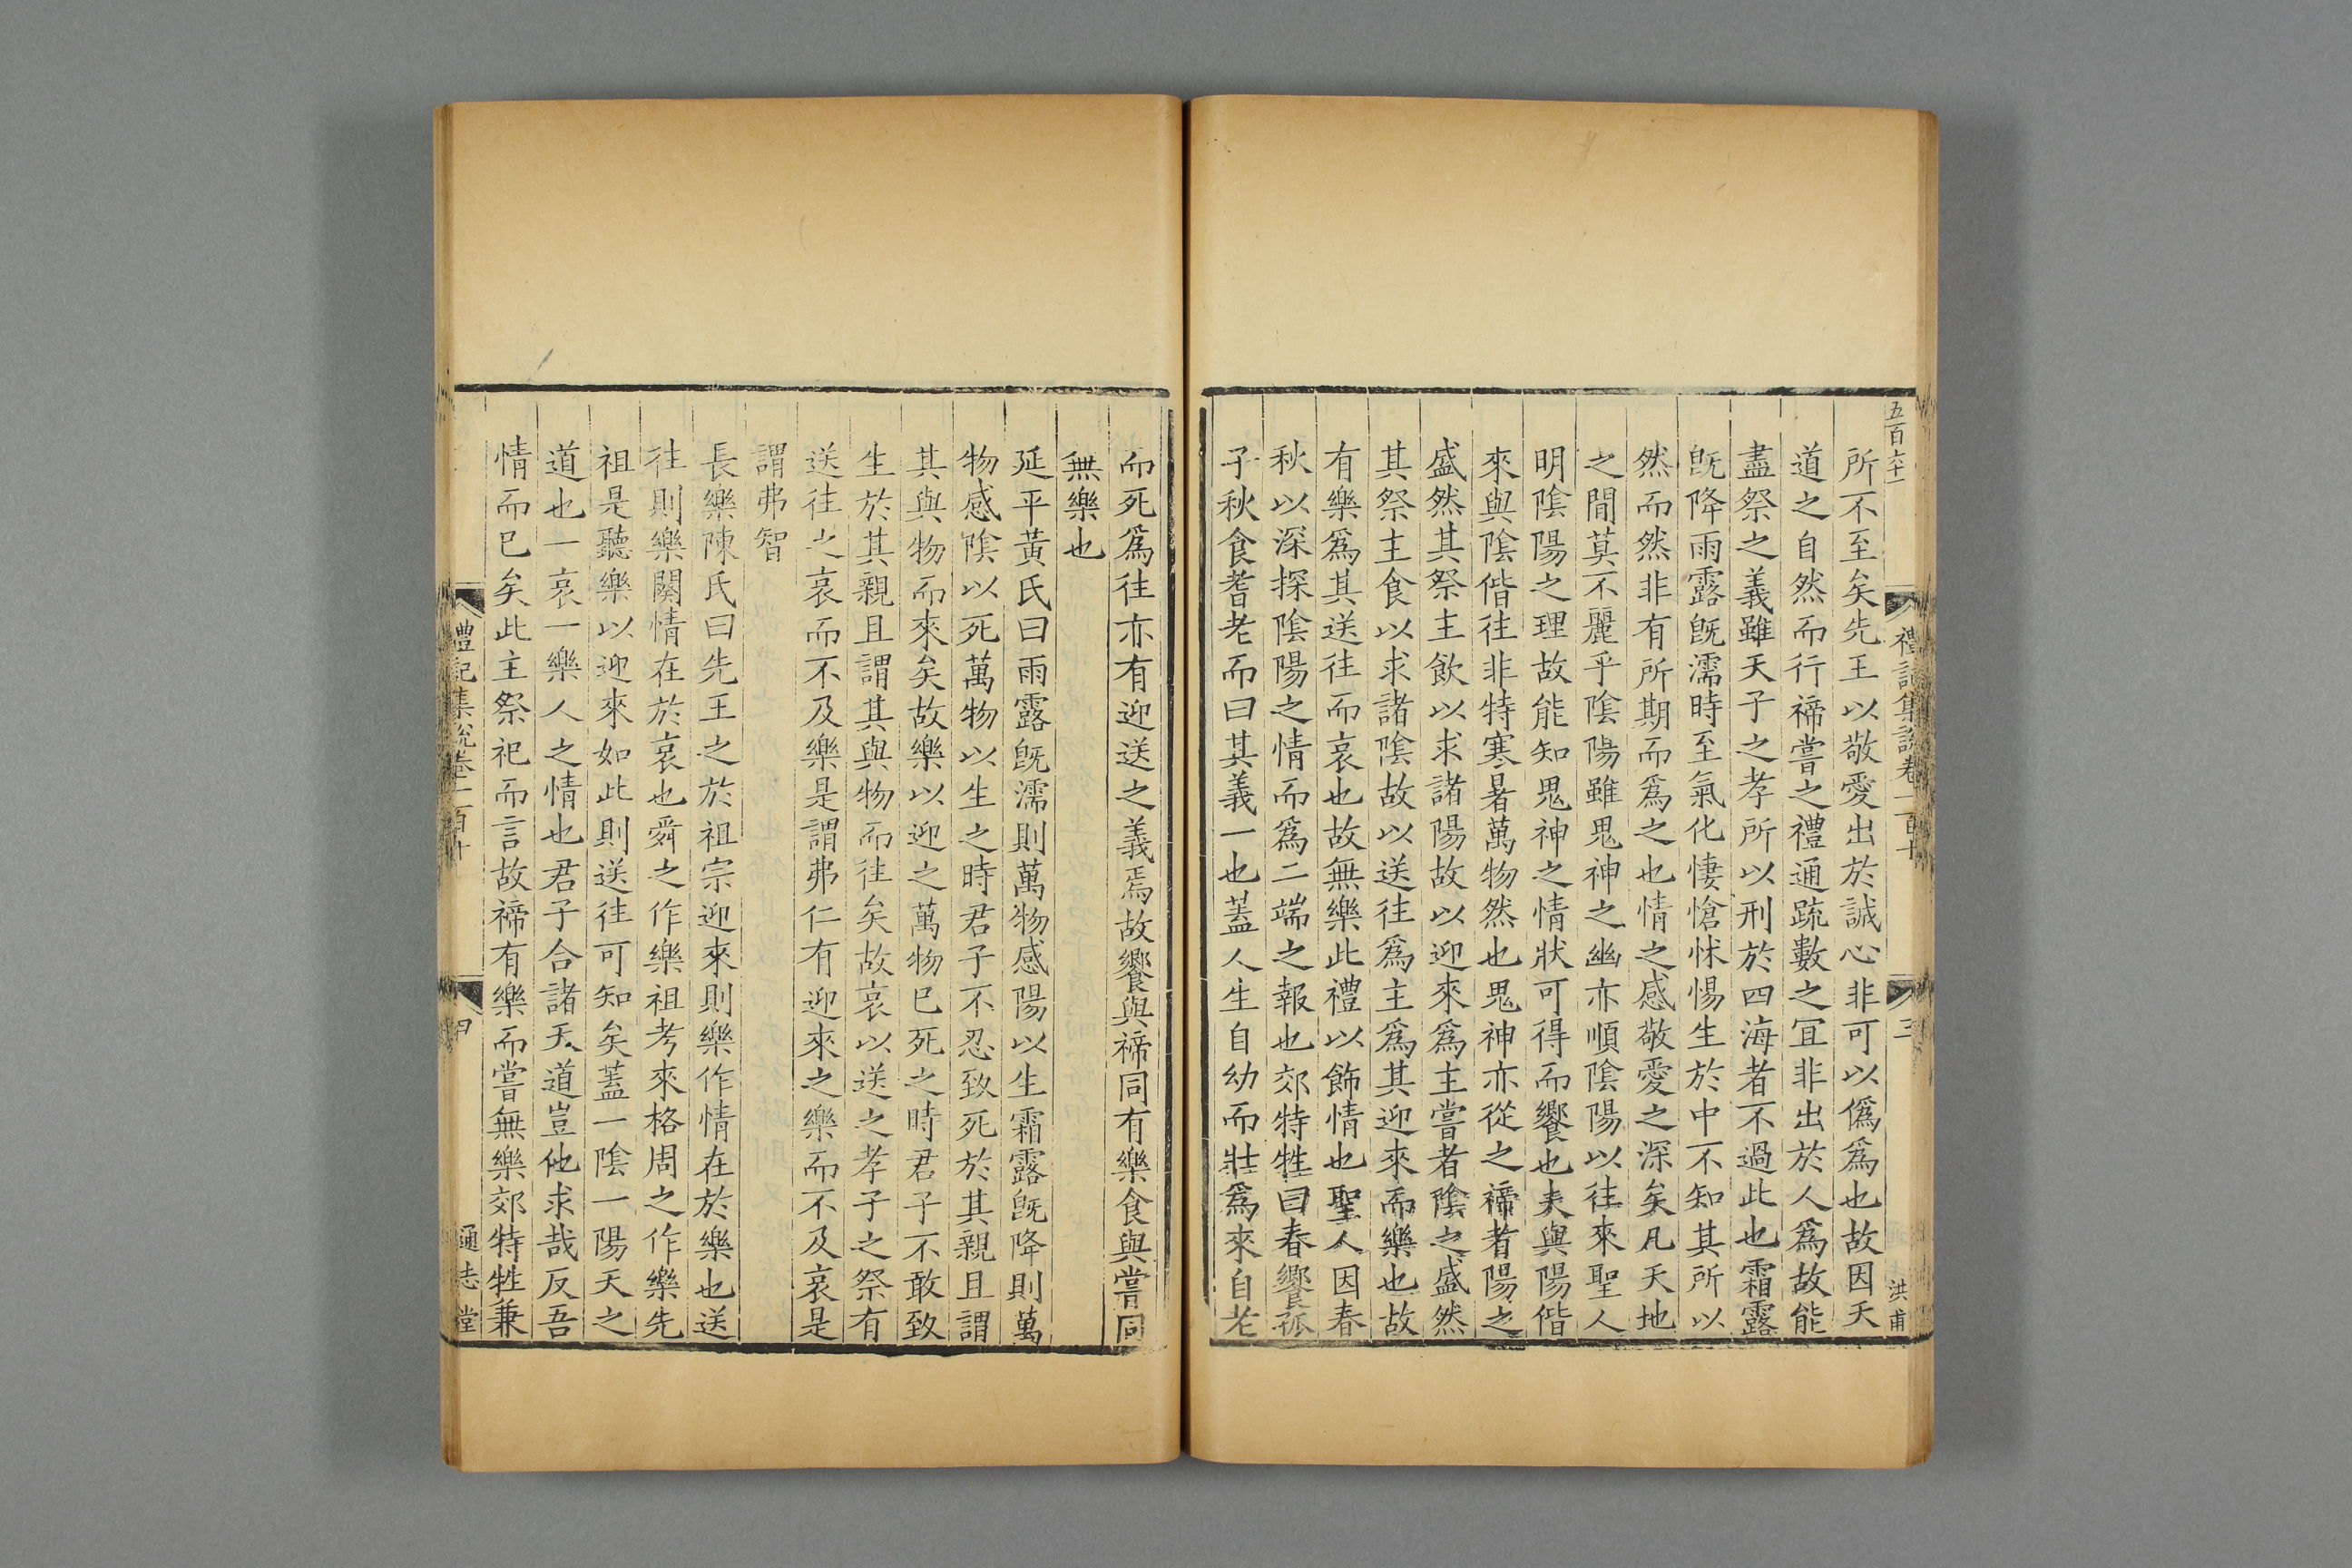 五百六十一
禮記集說卷一百十
三
洪甫
所不至矣先王以敬愛出於誠心非可以僞爲也故因天
道之自然而行禘嘗之禮通疏數之宜非出於人爲故能
盡祭之義雖天子之孝所以刑於四海者不過此也霜露
旣降雨露旣濡時至氣化悽愴怵惕生於中不知其所以
然而然非有所期而爲之也情之感敬愛之深矣凡天地
之間莫不麗乎陰陽雖鬼神之幽亦順陰陽以往來聖人
明陰陽之理故能知鬼神之情狀可得而饗也夫與陽偕
來與陰偕往非特寒暑萬物然也鬼神亦從之禘者陽之
盛然其祭主飲以求諸陽故以迎來爲主嘗者陰之盛然
其祭主食以求諸陰故以送往爲主爲其迎來而樂也故
有樂爲其送往而哀也故無樂此禮以飾情也聖人因春
秋以深探陰陽之情而爲二端之報也郊特牲曰春饗孤
子秋食耆老而曰其義一也蓋人生自幼而壯爲來自老
而死爲往亦有迎送之義焉故饗與禘同有樂食與嘗同
無樂也
延平黃氏曰雨露旣濡則萬物感陽以生霜露旣降則萬
物感陰以死萬物以生之時君子不忍致死於其親且謂
其與物而來矣故樂以迎之萬物已死之時君子不敢致
生於其親且謂其與物而往矣故哀以送之孝子之祭有
送往之哀而不及樂是謂弗仁有迎來之樂而不及哀是
謂弗智
長樂陳氏曰先王之於祖宗迎來則樂作情在於樂也送
往則樂闋情在於哀也舜之作樂祖考來格周之作樂先
祖是聽樂以迎來如此則送往可知矣蓋一陰一陽天之
道也一哀一樂人之情也君子合諸天道豈他求哉反吾
情而已矣此主祭祀而言故禘有樂而嘗無樂郊特牲兼
禮記集說卷一百十
通志堂